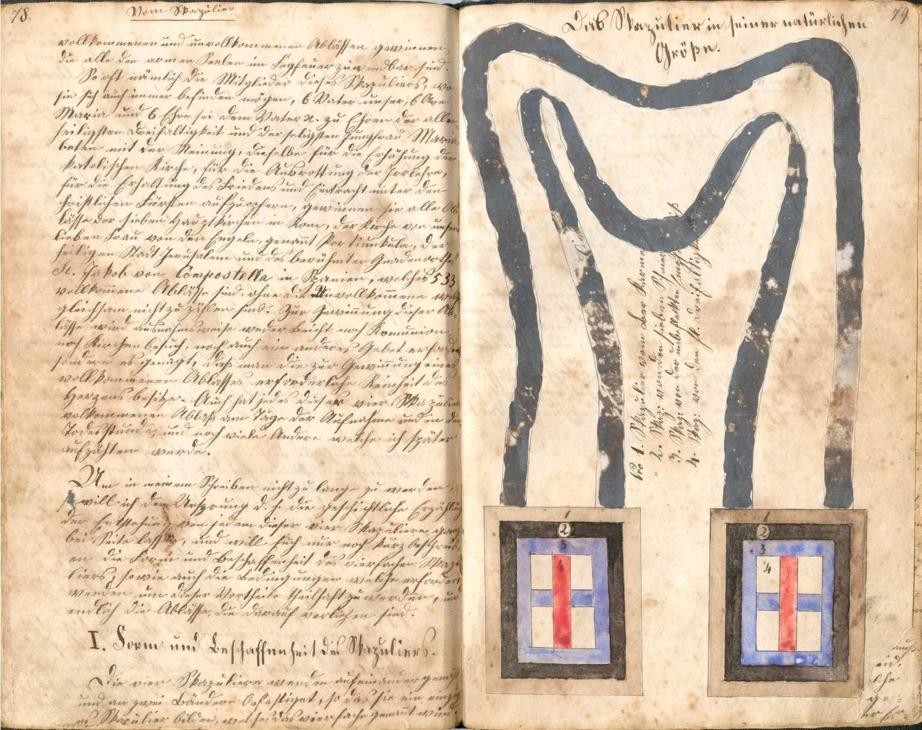 78.
Vom Skapulier
vollkommenen und unvollkommenen Ablässen gewinnen,
die alle den armen Seelen im Fegfeuer zuwendbar sind.
So oft nämlich die Mitglieder dieses Skapuliers, wo
sie sich auch immer befinden mögen, 6 Vater unser, 6 Ave
Maria und 6 Ehre sei dem Vater etc. zu Ehren der aller
heiligsten Dreifaltigkeit und der seligsten Jungfrau Maria
beten mit der Meinung, dieselbe für die Erhöhung der
katolischen Kirche, für die Ausrottung der Irrlehre,
für die Erhaltung des Friedens und Eintracht unter den
christlichen Fürsten aufzuopfern, gewinnen sie alle Ab
lässe der sieben Hauptkirchen in Rom, der Kirche von unser
lieben Frau von den Engeln, genannt Portiunkula, der
heiligen Stadt Jerusalem und des berühmten Gnadenortes
St. Jakob von Compostella in Spanien, welches 533
vollkommene Ablässe sind, ohne die Unvollkommene
gleichsam nicht zu zählen sind. Zur Gewinnung dieser Ab
lässe wird ausnahmsweise weder Beicht noch Komunion,
noch Kirchenbesuch, noch auch ein anderes Gebet erfordert
sondern es genügt, daß man die zur Gewinnung eines
vollkommenen Ablasses erforderliche Reinheit des
Herzens besitze. Auch hat jedes dieser vier Skapuliere
vollkommenen Ablaß am Tage der Aufnahme und in der
Todesstunde, und noch viele Andere welche ich später
aufzählen werde.
Um in meinem Schreiben nicht zu lange zu werden,
will ich den Ursprung d. h. die geschichtliche Erzählung
der Entstehung von jedem dieser vier Skapuliere ganz
bei Seite lassen, und will Euch nur noch kurz beschreiben
die Form und Beschaffenheit des vierfachen Skapu
liers, sowie auch die Bedingungen welche erfordert
werden um dieser Vortheile theilhaft zu werden, und
endlich die Ablässe die darauf verliehen sind.
I. Form und Beschaffenheit des Skapuliers.
Die vier Skapuliere werden aufeinander genäht
und an zwei Bändern befestiget, so daß sie ein einziges
Skapulier bilden, welches das vierfache genannt wird
79
Das Skapulier in seiner natürlichen
Größe.
Nro 1. Skapulir vom ober Karme
" 2. Skap: von den sieben Schmer
3. Skap: von der unbefleckten Empfä
4. Skap: von den h. Dreifaltig
1
2
3
4
1
2
3
4